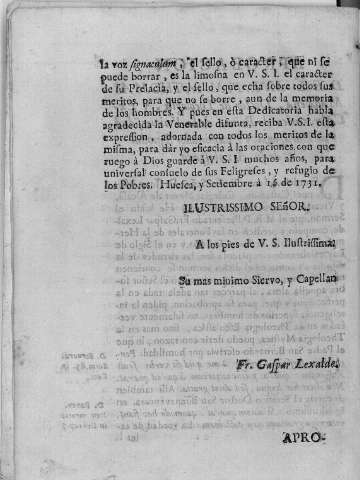 la voz signaculum, el sello, ò caracter, que ni se
puede borrar, es la limosna en V. S. I. el caracter
de su Prelacia, y el sello, que echa sobre todos sus
meritos, para que no se borre, aun de la memoria
de los hombres. Y pues en esta Dedicatoria habla
agradecida la Venerable difunta, reciba V.S.I. esta
expression, adornada con todos los meritos de la
misma, para dàr yo eficacia à las oraciones con que
ruego à Dios guarde à V. S. I muchos años, para
universal consuelo de sus Feligreses, y refugio de
los Pobres. Huesca, y Setiembre à 14. de 1731.
ILUSTRISSIMO SEñOR,
A los pies de V. S. Ilustrissima,
Su mas minimo Siervo, y Capellan
Fr. Gaspar Lexalde.
APRO-